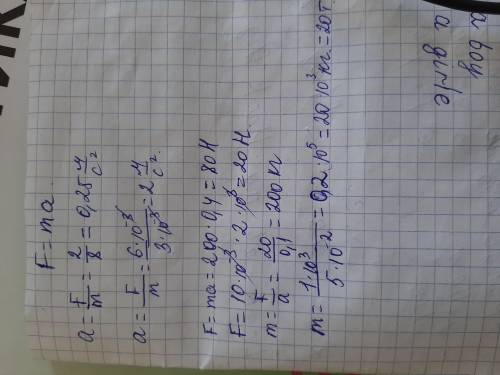 F = ma.
a = F/m = 2/8 = 0,25 м/с²
a = F/m = 6·10⁻³/3·10⁻³ = 2 м/с².
F = ma = 200·0,4 = 80 Н
F = 10·10⁻³·2·10³ = 20 Н.
m = F/a = 20/0,1 = 200 кг
m = 1·10³/5·10⁻² = 0,2·10⁵ = 20·10³ кг. = 20т